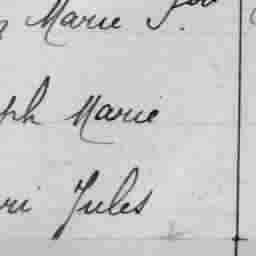 Marie
ph Marie
ri Jules